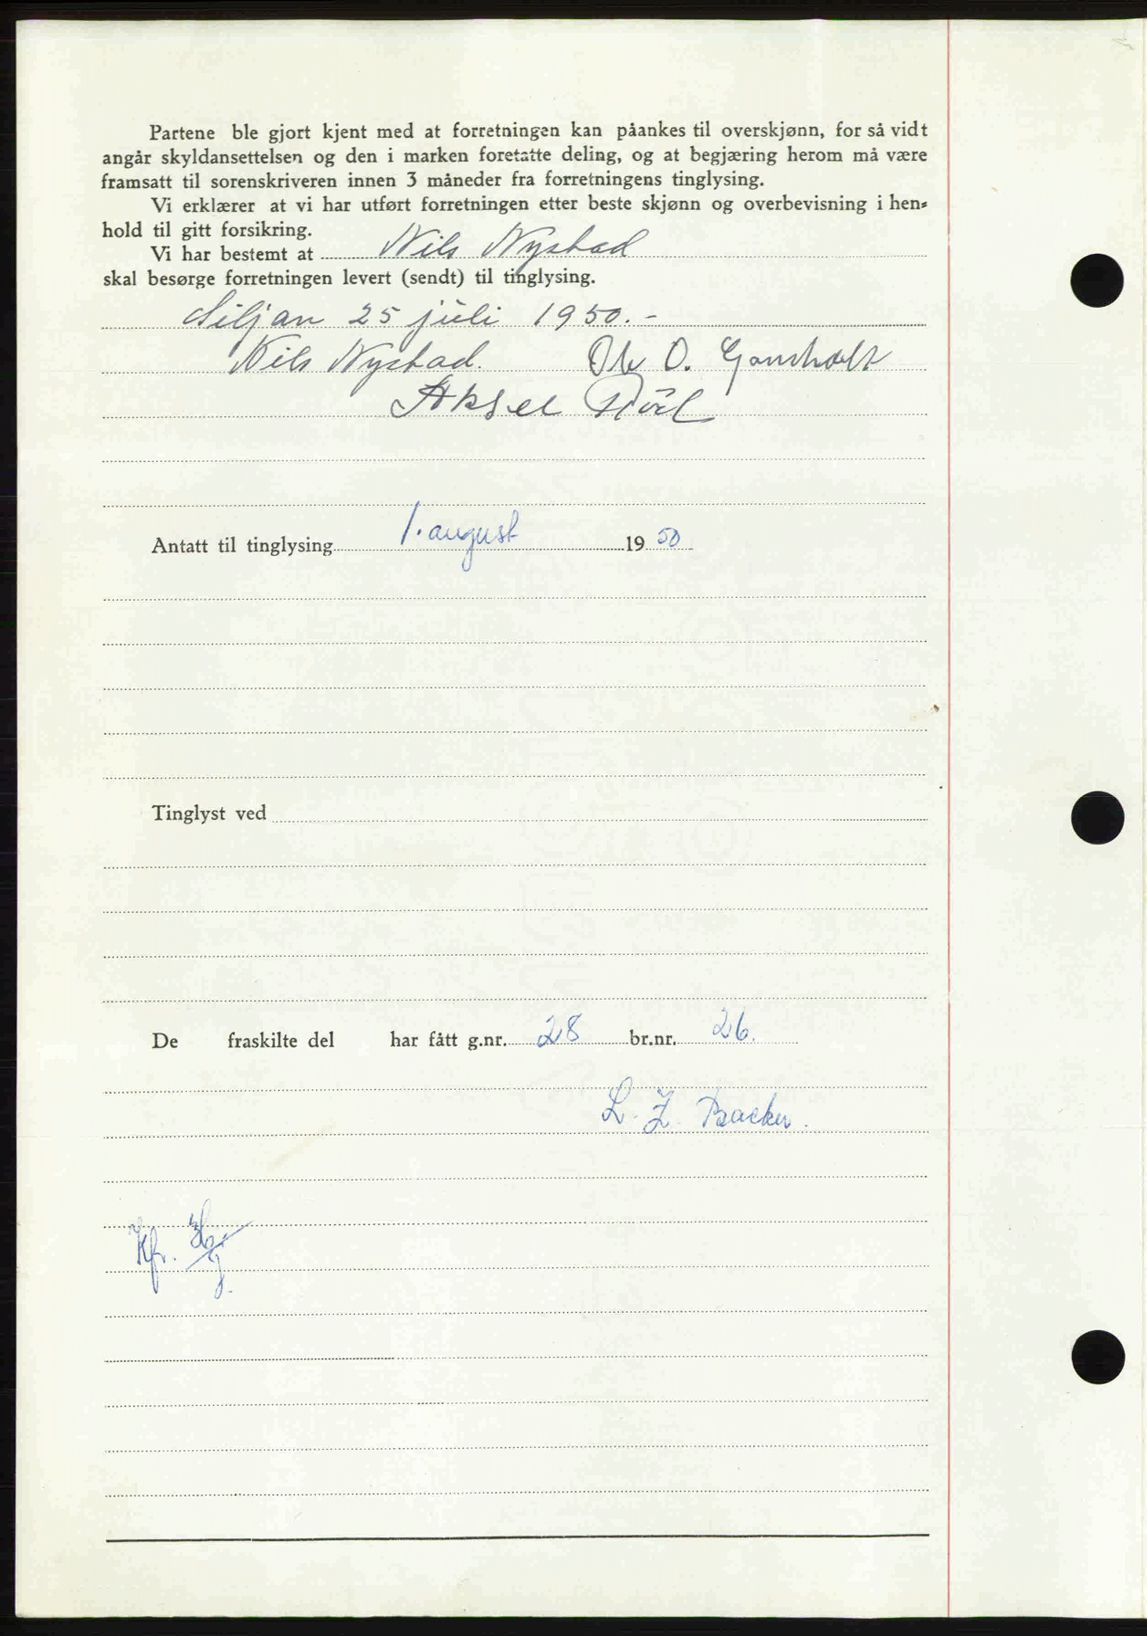 Partene ble gjort kjent med at forretningen kan påankes til overskjønn, for så vidt
angår skyldansettelsen og den i marken foretatte deling, og at begjæring herom må være
framsatt til sorenskriveren innen 3 måneder fra forretningens tinglysing.
Vi erklærer at vi har utført forretningen etter beste skjønn og overbevisning i hen-
hold til gitt forsikring.
Vi har bestemt at Nils Nystad
skal besørge forretningen levert (sendt) til tinglysing.
Siljan 25 juli 1950.-
Nils Nystad. Ole O. Gonsholt
Aksel
Antatt til tinglysing 1. august 1950
Tinglyst ved
De fraskilte del har fått g.nr. 28 br.nr. 26.
L. Z. Backer.
Kfr.